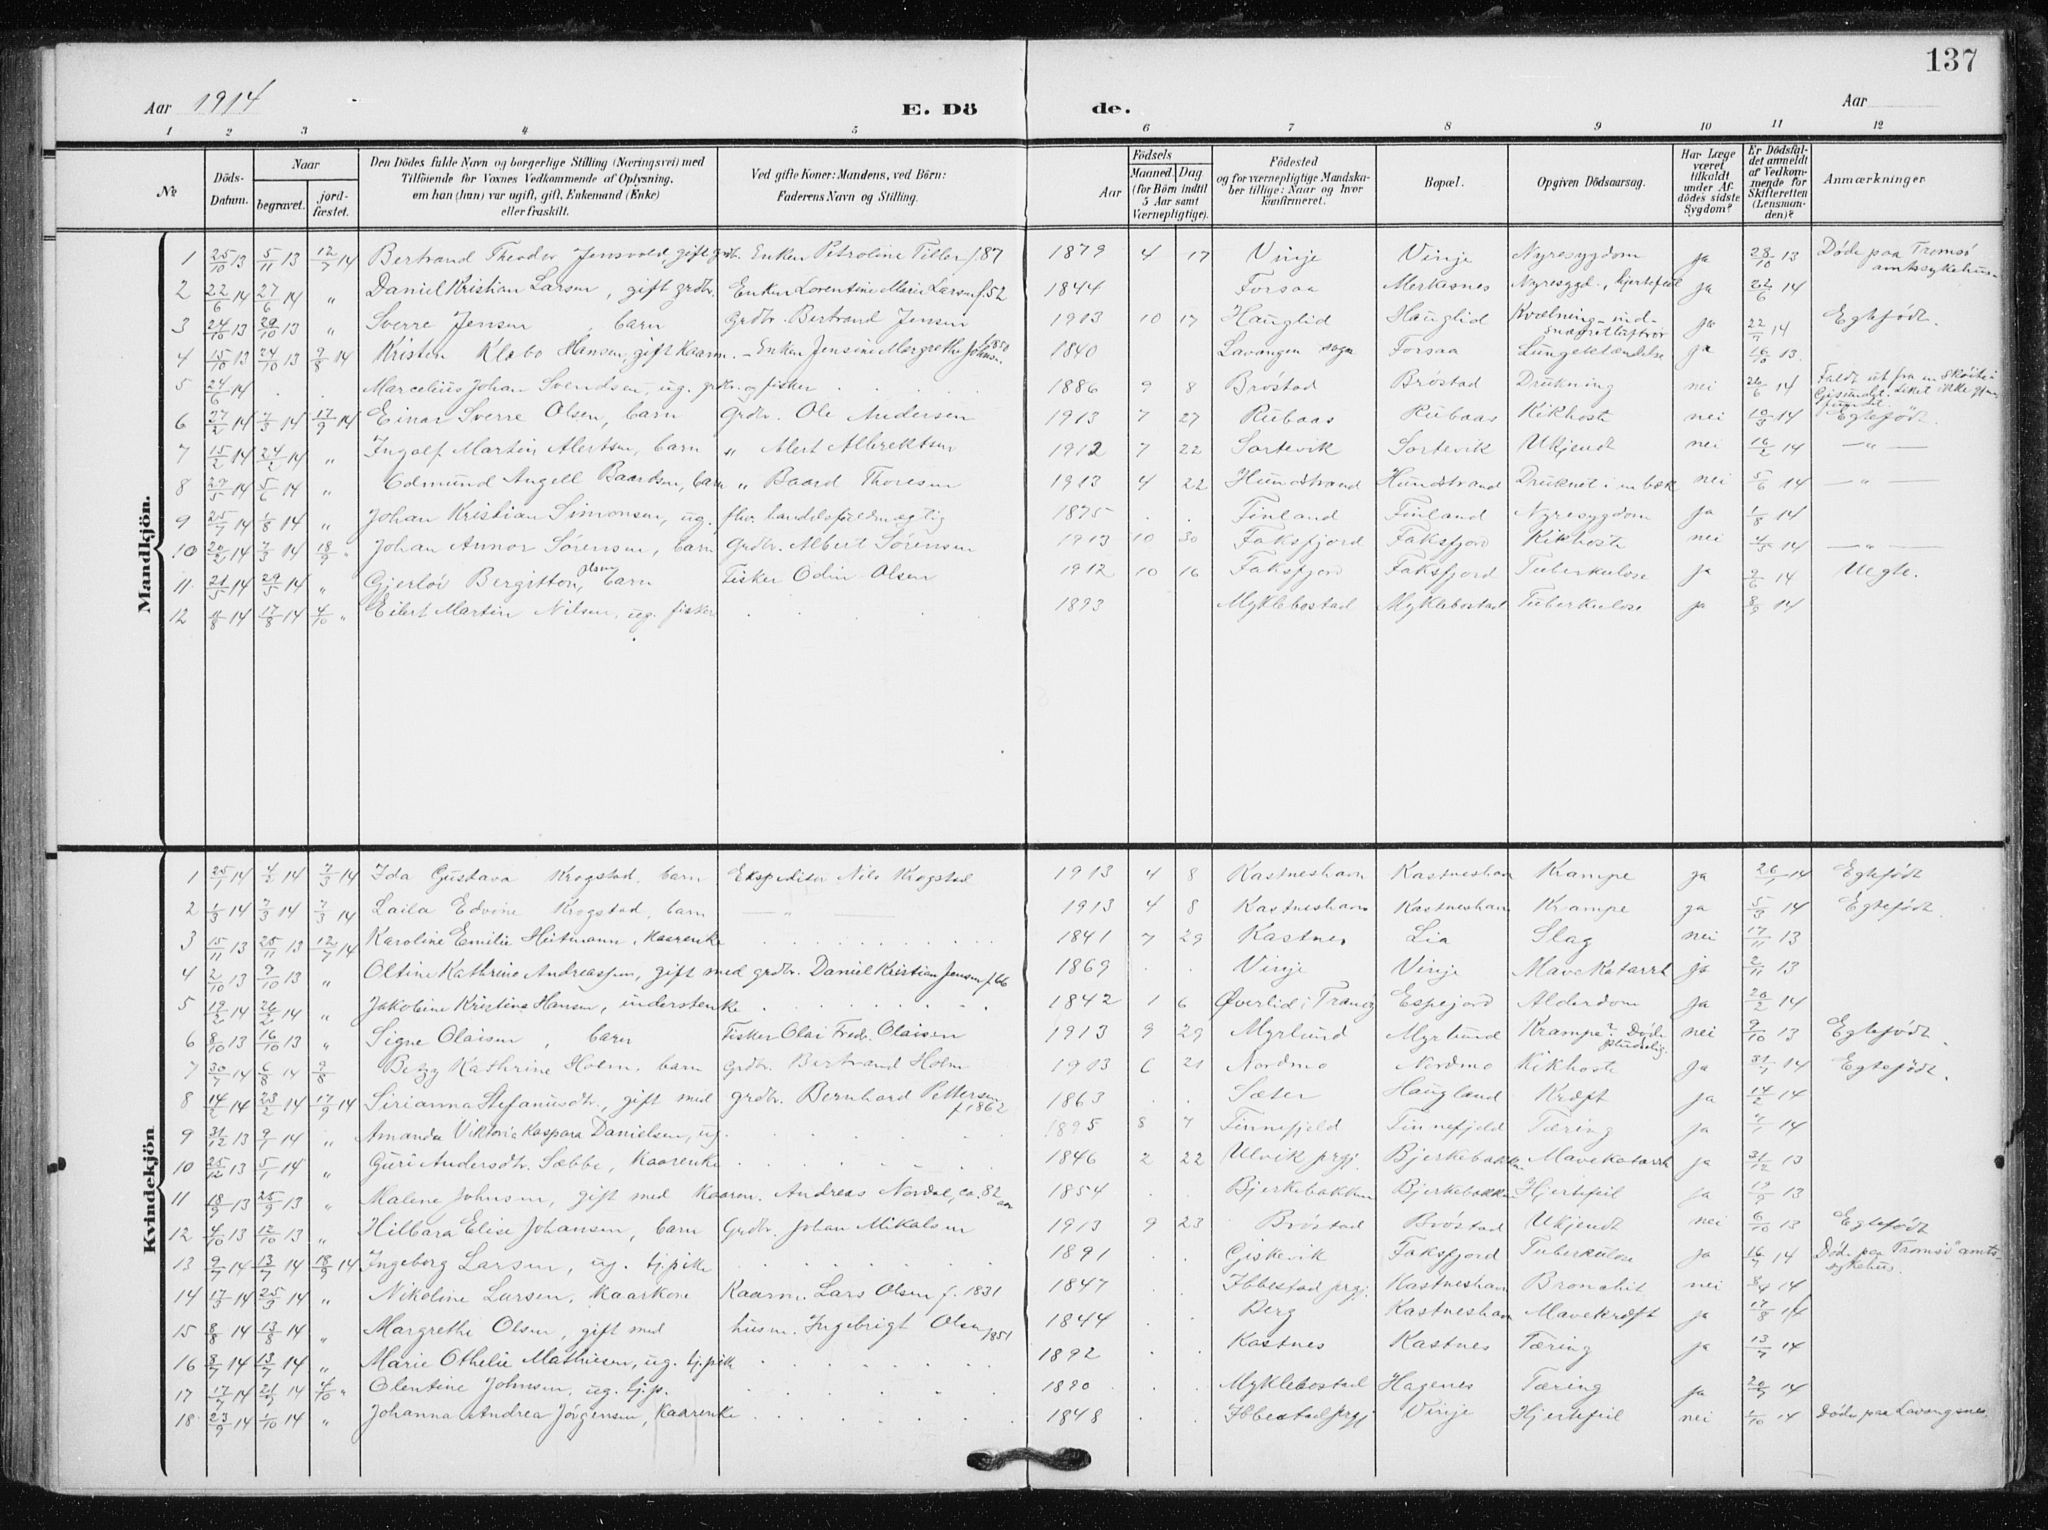 137
Aar 1914 E. Dö de. Aar
1 2 3 4 5 6 7 8 9 10 11 12
№
Döds-Datum.
Naar begravet. jordfæstet.
Den Dödes fulde Navn og borgerlige Stilling (Næringsvei) med Tilföiende for Voxnes Vedkommende af Oplysning, om han (hun) var ugift, gift, Enkemand (Enke) eller fraskilt.
Ved gifte Koner: Mandens, ved Börn: Faderens Navn og Stilling.
Aar
Födsels Maaned. Dag (for Börn indtil 5 Aar samt Værnepligtige).
Födested og for værnepligtige Mandskaber tillige: Naar og hvor konfirmeret.
Bopæl.
Opgiven Dödsaarsag.
Har Læge været tilkaldt under Afdödes sidste Sygdom?
Er Dödsfaldet anmeldt af Vedkommende for Skifteretten (Lensmanden)?
Anmærkninger
Mandkjön.
1 25/10 13 5/11 13 12/7 14 Bertrand Theodor Jensvold, gift grdbr. Enken Petroline Tiller f. 87 1879 4 17 Vinje Vinje Nyresygdom ja 28/10 13 Døde paa Tromsø amtssykehus
2 22/6 14 27/6 14 " Daniel Kristian Larsen, gift grdbr. Enken Lorentine Marie Larsen f. 52 1844 Forsaa Merkesnes Nyresygd., hjertefeil ja 22/6 14
3 24/10 13 29/10 13 " Sverre Jensen, barn Grdbr. Bertrand Jensen 1913 10 17 Hauglid Hauglid Kvælning ja 22/7 14 Egtefødt.
4 15/10 13 24/10 13 9/8 14 Kristen Klæbo Hansen, gift Kaarm. - Enken Jensine Margrethe Johnsn. 1850 1840 Lavangen sogn Forsaa Lungebetændelse ja 16/10 13.
5 24/6 14 . . Marcelius Johan Svendsen, ug. grdbr. og fisker 1886 9 8 Brøstad Brøstad Drukning nei 26/6 14 Faldt ut fra en skøite i Gisundet. Liket ikke gjenfundet.
6 27/2 14 7/3 14 17/9 14 Einar Sverre Olsen, barn Grdbr. Ole Andersen 1913 7 27 Rubaas Rubaas Kikhoste nei 10/3 14 Egtefødt.
7 15/2 14 24/2 14 " Ingolf Martin Alertsen, barn " Alert Albrektsen 1912 7 22 Sortevik Sortevik Ukjendt nei 16/2 14 — " —
8 27/5 14 5/6 14 " Edmund Angell Baardsen, barn " Baard Thoresen 1913 4 22 Hundstrand Hundstrand Druknet i en bæk nei 5/6 14 — " —
9 25/7 14 1/8 14 " Johan Kristian Simonsen, ug. fhv. handelsfuldmægtig 1875 . . Finland Finland Nyresygdom ja 1/8 14
10 20/2 14 7/3 14 18/9 " Johan Annor Sørensen, barn Grdbr. Albert Sørensen 1913 10 30 Faksfjord Faksfjord Kikhoste nei 4/3 14 — " —
11 21/5 14 29/5 14 " Gjerløv Bergitton Olsen, barn Fisker Odin Olsen 1912 10 16 Faksfjord Faksfjord Tuberkulose ja 2/6 14 Uegte.
12 11/8 14 17/8 14 4/10 " Eilert Martin Nilsen, ug. fisker 1893 Myklebostad Myklebostad Tuberkulose ja 8/9 14
Kvindekjön
1 25/1 14 4/2 14 7/3 14 Ida Gustava Krogstad, barn Ekspeditør Nils Krogstad 1913 4 8 Kastneshavn Kastneshavn Krampe ja 26/1 14 Egtefødt
2 1/3 14 7/3 14 7/3 14 Laila Edvine Krogstad, barn — " — 1913 4 8 Kastneshavn Kastneshavn Krampe ja 5/3 14 Egtefødt.
3 15/11 13 25/11 13 12/7 14 Karoline Emilie Heitmann, Kaarenke 1841 7 29 Kastnes Lia Slag nei 17/11 13
4 2/10 13 9/10 13 " Oltine Kathrine Andreassen, gift med grdbr. Daniel Kristian Jensen f. 66 1869 . . Vinje Vinje Mavekatarrh ja 2/11 13
5 12/2 14 26/2 14 " Jakobine Kristine Hansen, understenke 1842 1 6 Øverlid i Tranø Espejord Alderdom ja 20/2 14
6 8/10 13 16/10 13 " Signe Olaisen, barn Fisker Olai Fredr. Olaisen 1913 9 29 Myrlund Myrlund Krampe? Døde pludselig. nei 9/10 13 Egtefødt.
7 30/7 14 6/8 14 9/8 Betzy Kathrine Holm, barn Grdbr. Bertrand Holm 1913 6 21 Nordmo Nordmo Kikhoste ja 31/7 14 Egtefødt.
8 14/2 14 23/2 14 17/9 14 Sirianna Stefanusdtr., gift med grdbr. Bernhard Pettersen f. 1862 1863 . . Sæter Haugland Kræft ja 14/2 14
9 31/12 13 9/1 14 " Amanda Viktoria Kaspara Danielsen, ug. 1895 8 7 Finnefjeld Finnefjeld Tæring ja 7/1 14
10 25/12 13 5/1 14 " Guri Andersdtr. Sæbbe, Kaarenke 1846 2 22 Ulvik prgj. Bjerkebakken Mavekatarrh ja 31/12 13
11 18/9 13 25/9 13 " Malene Johnsen, gift med Kaarm. Andreas Nordal, ca. 82 aar 1854 . . Bjerkebakken Bjerkebakken Hjertefeil ja 19/9 13
12 4/10 13 12/10 13 " Hilbara Elise Johansen, barn Grdbr. Johan Mikalsen 1913 9 23 Brøstad Brøstad Ukjendt nei 6/10 13 Egtefødt
13 9/7 14 13/7 14 18/9 14 Ingeborg Larsen, ug. tj.pike 1891 . . Giskevik Faksfjord Tuberkulose ja 16/7 14 Døde paa Tromsø amtssykehus.
14 17/3 14 25/3 14 " Nikoline Larsen, Kaarkone Kaarm. Lars Olsen f. 1831 1847 . . Ibbestad prgj. Kastneshavn Bronchit nei 8/4 14
15 8/8 14 13/8 14 " Margrethe Olsen, gift med husm. Ingebrigt Olsen 1851 1844 . . Berg Kastneshavn Mavekræft ja 17/8 14
16 8/7 14 13/7 14 " Marie Othelie Mathiesen, ug. tj.pike 1892 . . Kastnes Kastnes Tæring ja 13/7 14
17 17/7 14 21/7 14 4/10 " Olentine Johnsen, ug. tj.p. 1890 . . Myklebostad Hagenes Tæring ja 20/7 14
18 23/9 14 1/10 14 " Johanna Andrea Jørgensen, Kaarenke 1848 . . Ibbestad prgj Vinje Hjertefeil nei 1/10 14 Døde paa Lavangsnes.